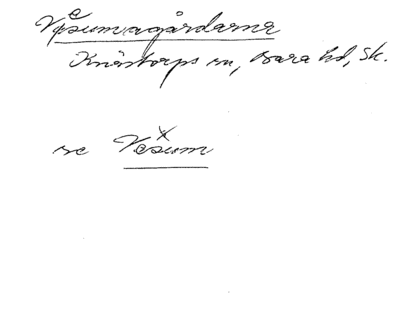 Vesumagårdarna
Knästorps sn, Bara hd, Sk.
se Vesum